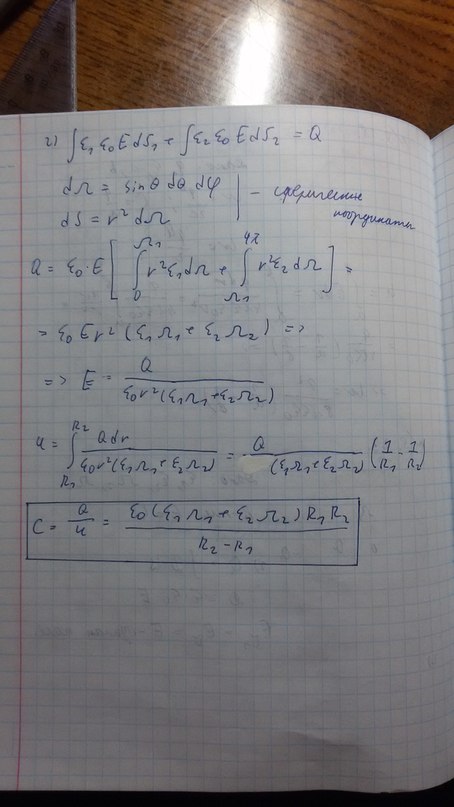 2) ∫ε₁ε₀EdS₁ + ∫ε₂ε₀EdS₂ = Q
dΩ = sinθ dθ dφ | – сферические
dS = r²dΩ | координаты
Q = ε₀·E [ ∫₀^Ω₁ r²ε₁dΩ + ∫_Ω₁^4π r²ε₂dΩ ] =
= ε₀Er²(ε₁Ω₁ + ε₂Ω₂) =>
=> E = Q / ε₀r²(ε₁Ω₁+ε₂Ω₂)
U = ∫_R₁^R₂ Qdr / ε₀r²(ε₁Ω₁+ε₂Ω₂) = Q / (ε₁Ω₁+ε₂Ω₂) (1/R₁ - 1/R₂)
C = Q/U = ε₀(ε₁Ω₁+ε₂Ω₂)R₁R₂ / R₂-R₁